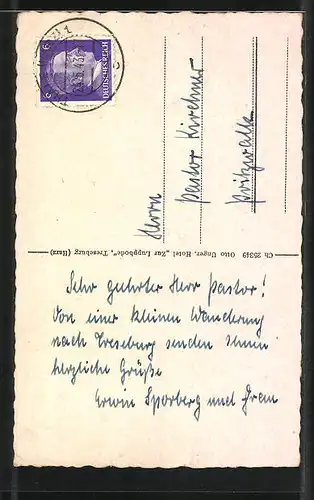 Sehr geehrter Herr Pastor!
Von einer kleinen Wanderung
nach Treseburg senden Ihnen
herzliche Grüße
Erwin Sporberg und Frau
Ch 25349 Otto Unger, Hotel „Zur Luppbode“, Treseburg (Harz)
Herrn
Pastor Kirchner
Pritzwalk
DEUTSCHES REICH
6
6